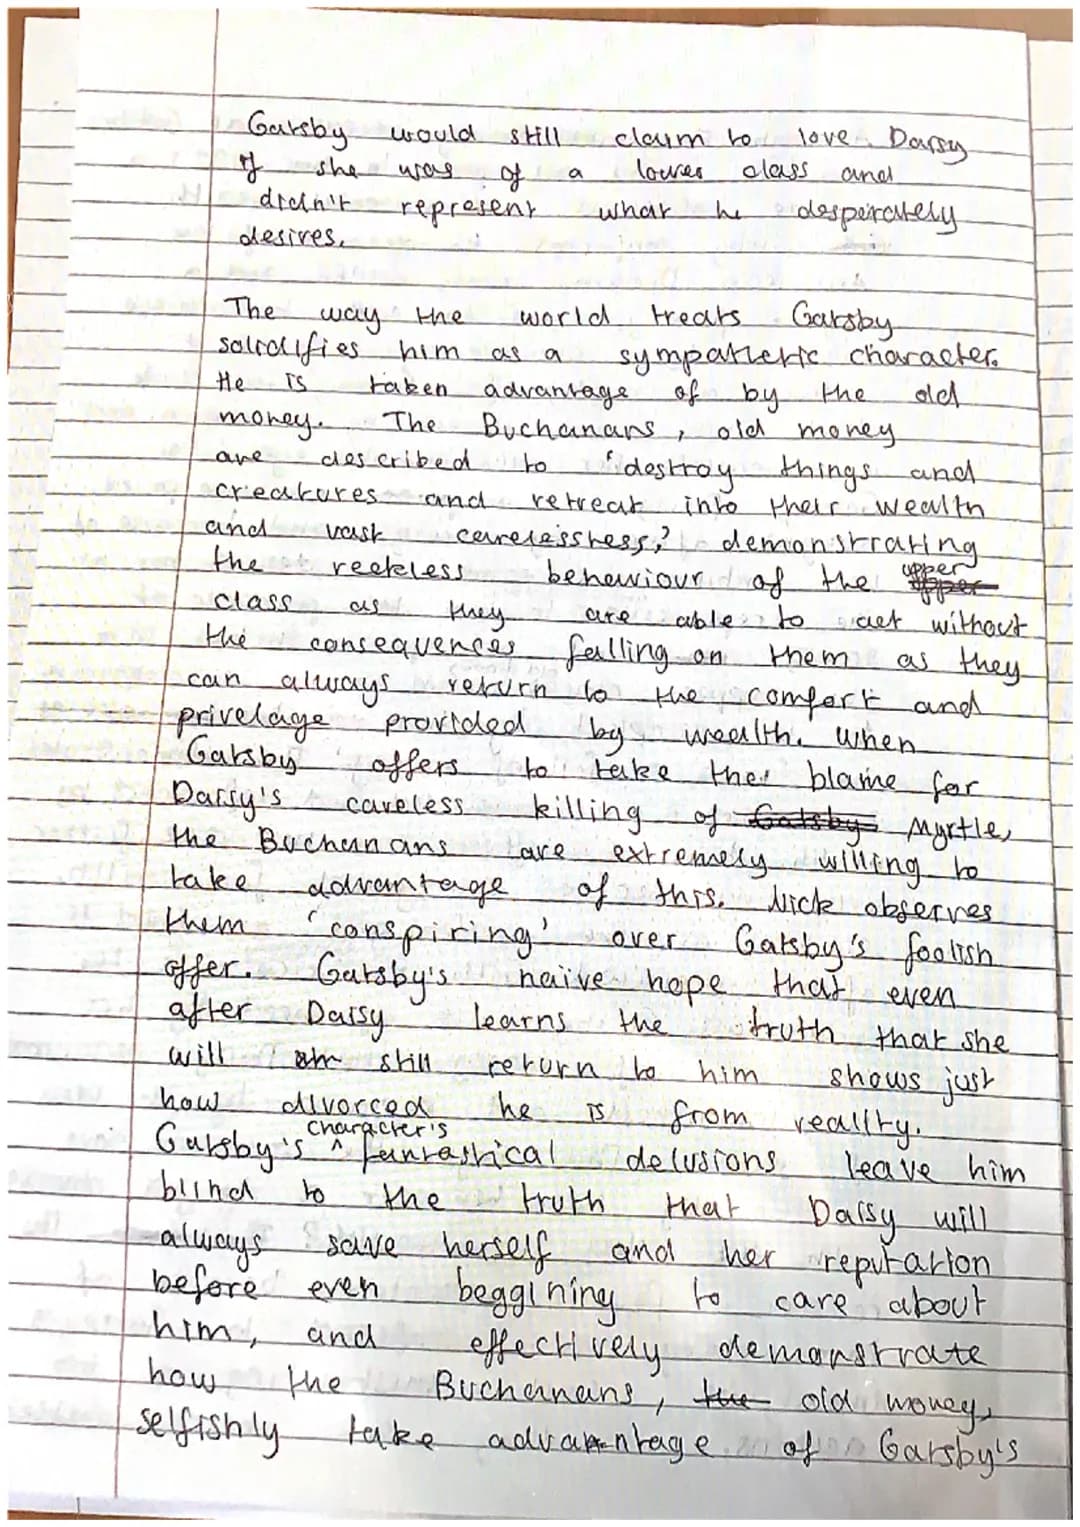 Gatsby would still claim to love Daisy
if she was of a lower class and
didn't represent what he desperately
desires.
The way the world treats Gatsby
solidifies him as a sympathetic character.
He is taken advantage of by the old
money. The Buchanans, old money
are described to 'destroy things and
creatures and retreat into their wealth
and vast carelessness,' demonstrating
the reckless behaviour of the upper
class as they are able to act without
the consequences falling on them as they
can always return to the comfort and
privelage provided by wealth. When
Gatsby offers to take the blame for
Daisy's careless killing of Gatsby Myrtle,
the Buchanans are extremely willing to
take advantage of this. Nick observes
them 'conspiring' over Gatsby's foolish
offer. Gatsby's naive hope that even
after Daisy learns the truth that she
will still return to him shows just
how divorced he is from reality.
Gatsby's character's fantastical delusions leave him
blind to the truth that Daisy will
always save herself and her reputation
before even beggining to care about
him, and effectively demonstrate
how the Buchanans, the old money,
selfishly take advantage of Gatsby's